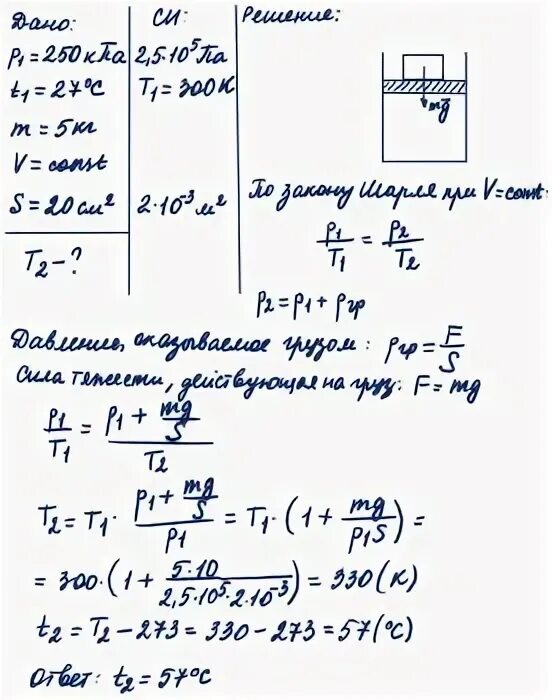 Дано: СИ: Решение:
p₁ = 250 кПа 2,5·10⁵ Па
t₁ = 27°C T₁ = 300 K
m = 5 кг
V = const
S = 20 см² 2·10⁻³ м²
T₂ - ?
mg⃗
По закону Шарля при V = const:
p₁/T₁ = p₂/T₂
p₂ = p₁ + pгр
Давление, оказываемое грузом: pгр = F/S
Сила тяжести, действующая на груз: F = mg
p₁/T₁ = (p₁ + mg/S)/T₂
T₂ = T₁ · (p₁ + mg/S)/p₁ = T₁ · (1 + mg/(p₁S)) =
= 300 · (1 + 5·10/(2,5·10⁵·2·10⁻³)) = 330 (K)
t₂ = T₂ - 273 = 330 - 273 = 57 (°C)
Ответ: t₂ = 57°C